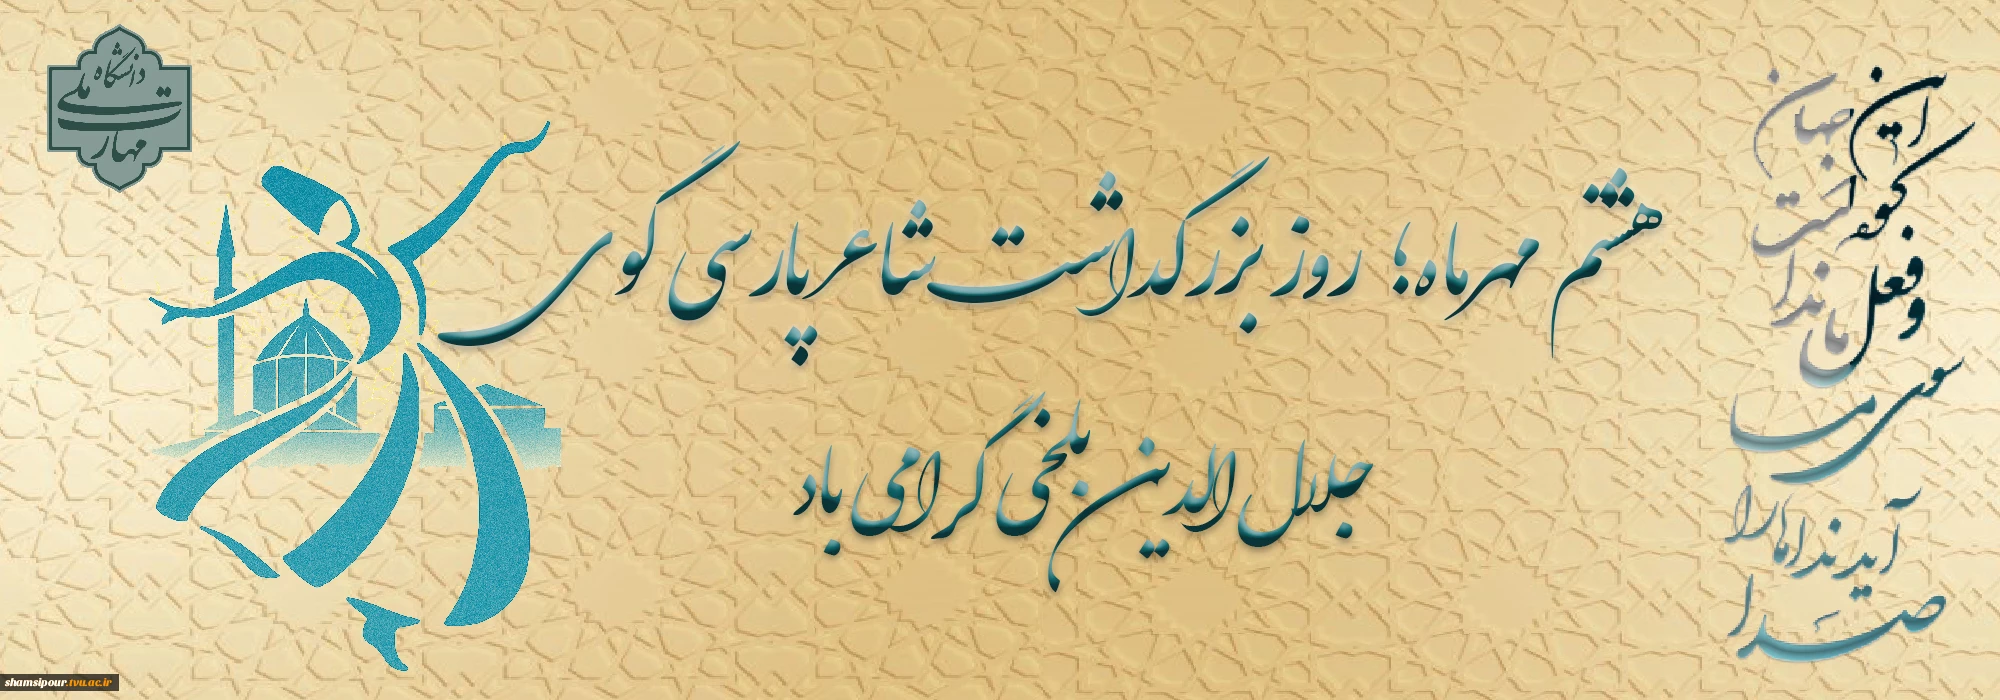 هشتم مهرماه؛ روز بزرگداشت شاعر پارسی گوی
جلال الدین بلخی گرامی باد
این جهان
کوه است
و فعل
ما ندا
سوی ما
آید نداها را
صدا
دانشگاه ملی
مهارت
shamsipour.tvu.ac.ir